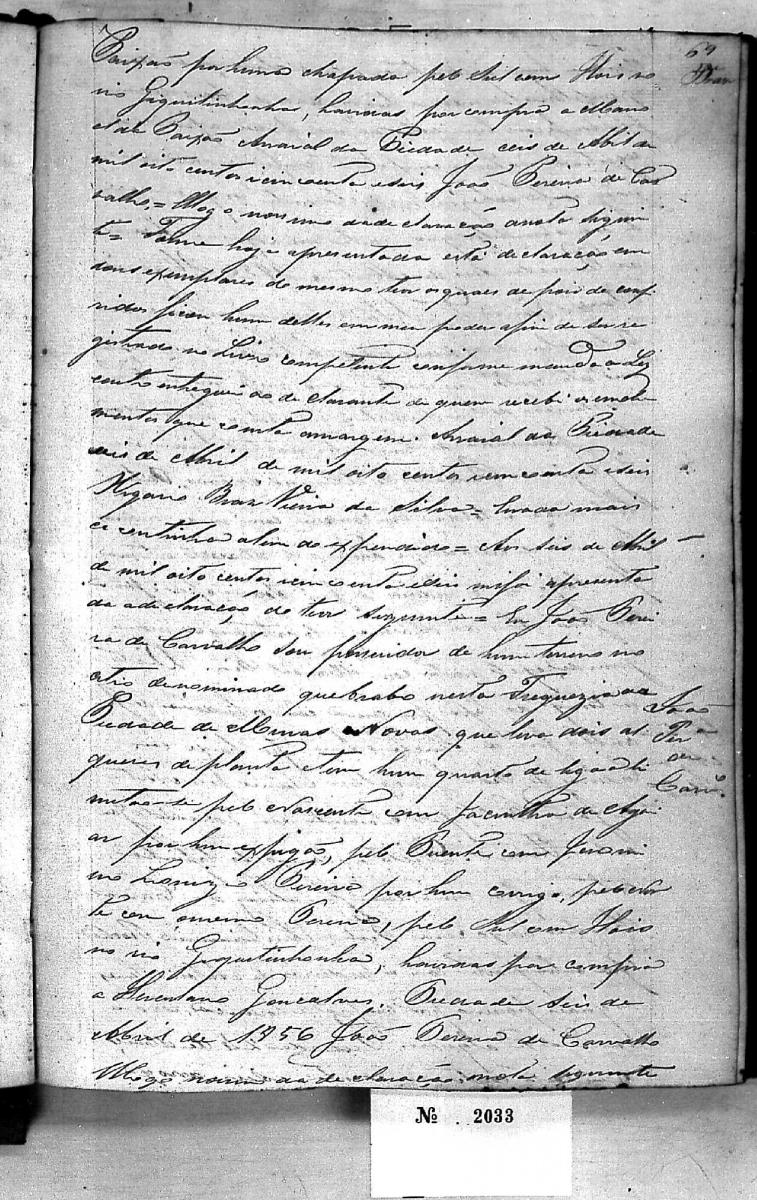 69
Paixaõ por huma chapada pelo Sul com Ilhois no
rio Gigiitinhonha, havidas por compra a Mano
el da Paixaõ Arraial da Piedade ceis de Abril de
mil oito centos icincoenta eseis Joaõ Pereira de Car
valho = E logo no ssimo da declaração anota seguin
te = Foime hoje apresentada esta declaração em
dous exemplares do mesmo teor os quaes de pois de conf
ridos ficou hum delles em meu poder afim de ser re
gistrado no Livro competente conforme manda a Lei
eoutro entreguei ao declarante de quem recebi os emolu
mentos que consta amargem. Arraial da Piedade
seis de Abril de mil oito centos icincoenta eseis
Vigario Braz Vieira da Silva = Enada mais
se continha alem do expendido = Aos seis de Abril
de mil oito centos icincoenta eseis mefoi apresenta
da a declaração do teor seguinte = Eu Joaõ Perei
ra de Carvalho sou possuidor de hum terreno no
citio denominado quebrabo nesta Freguezia da
Piedade de Minas Novas que leva dois al
queres de planta etem hum quarto de legoa li
mitase pelo Nascente com Jacintho de Agui
ar por hum espigaõ, pelo Puente com Jeroni
mo Pereira por hum corrigo, pelo Nor
te com omesmo Pereira, pelo Sul com Ilhois
no rio Gigiitinhonha, havidas por compra
a Herculano Gonçalves. Piedade seis de
Abril de 1856 Joaõ Pereira de Carvalho
E logo da declaração anota seguinte
Joaõ
Per.ª
de
Carv.º
Nº 2033